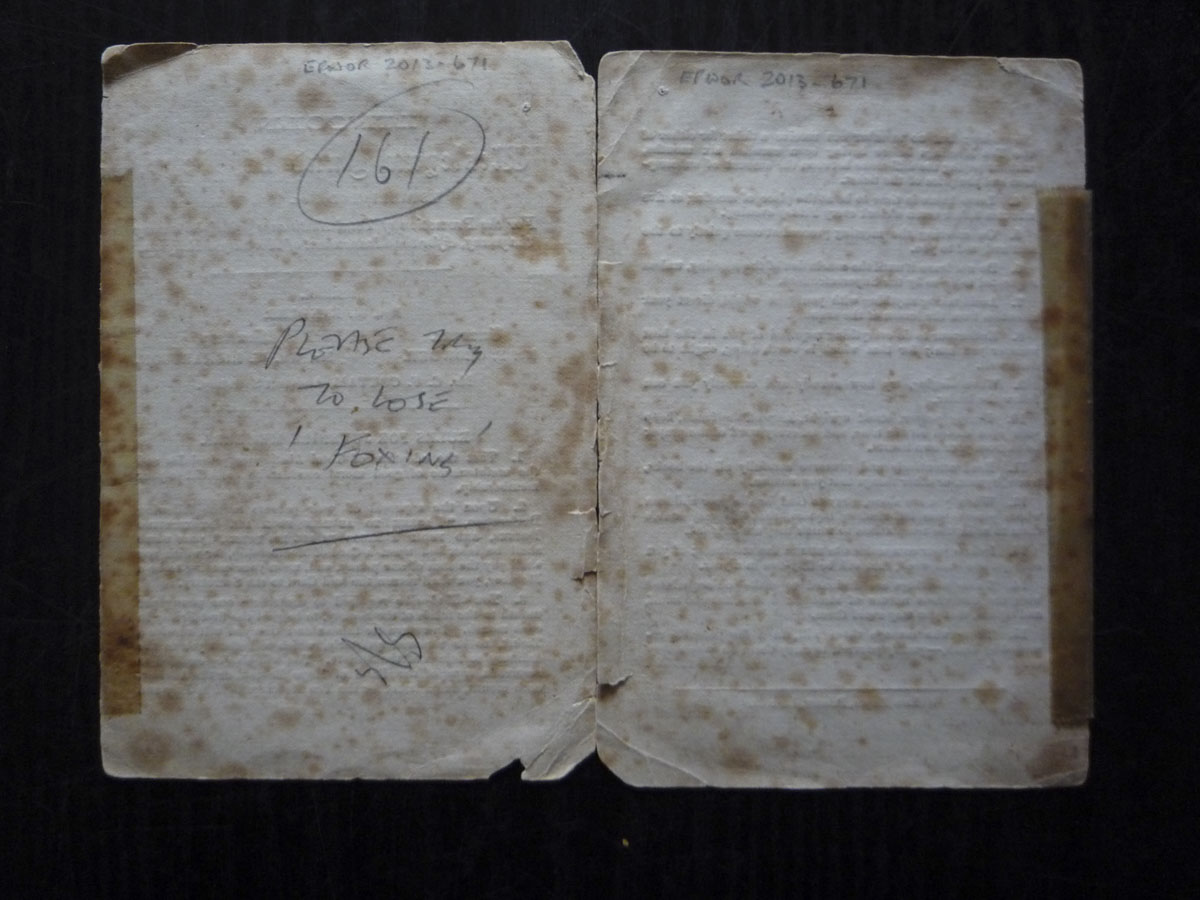 EPWOR 2013-671
161
PLEASE TRY
TO LOSE
'FOXING'
EPWOR 2013-671